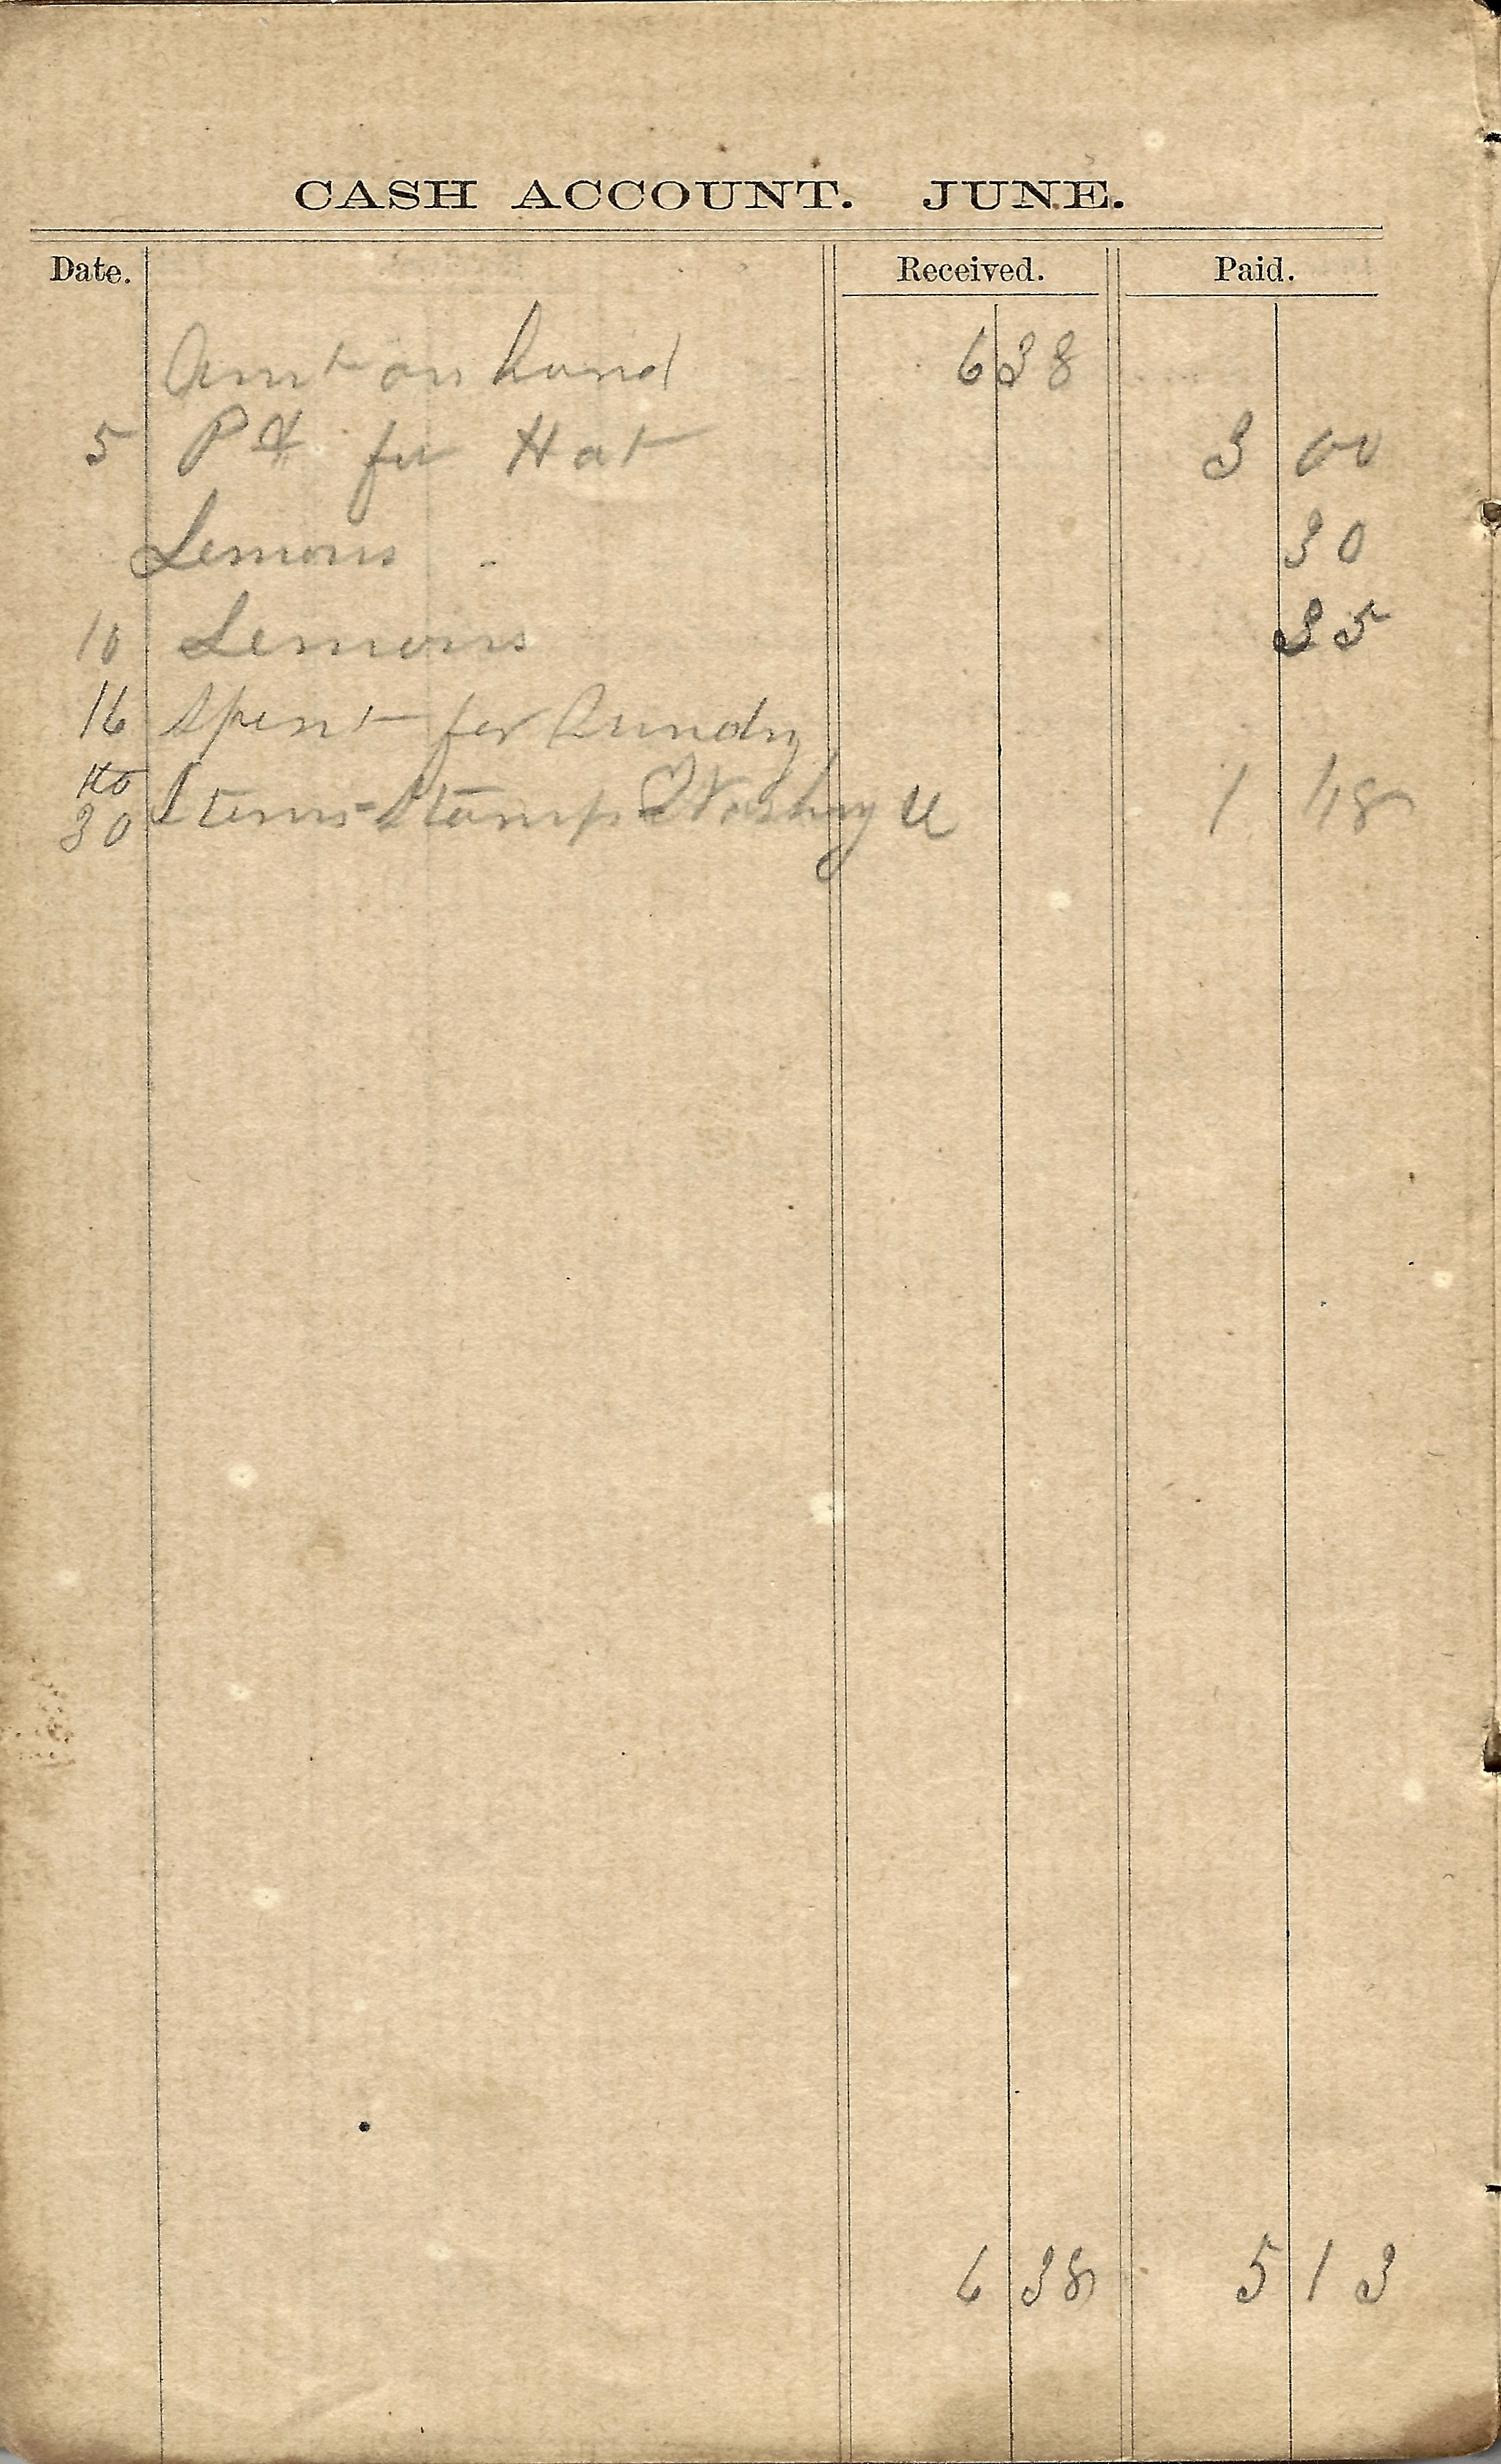 CASH ACCOUNT. JUNE.
Date. Received. Paid.
Amt on hand 6 38
5 Pd for Hat 3 00
Lemons - 30
10 Lemons 35
16 Spent for Sundry
to
30 Items Stamps & Washing &c 1 48
6 38 5 13